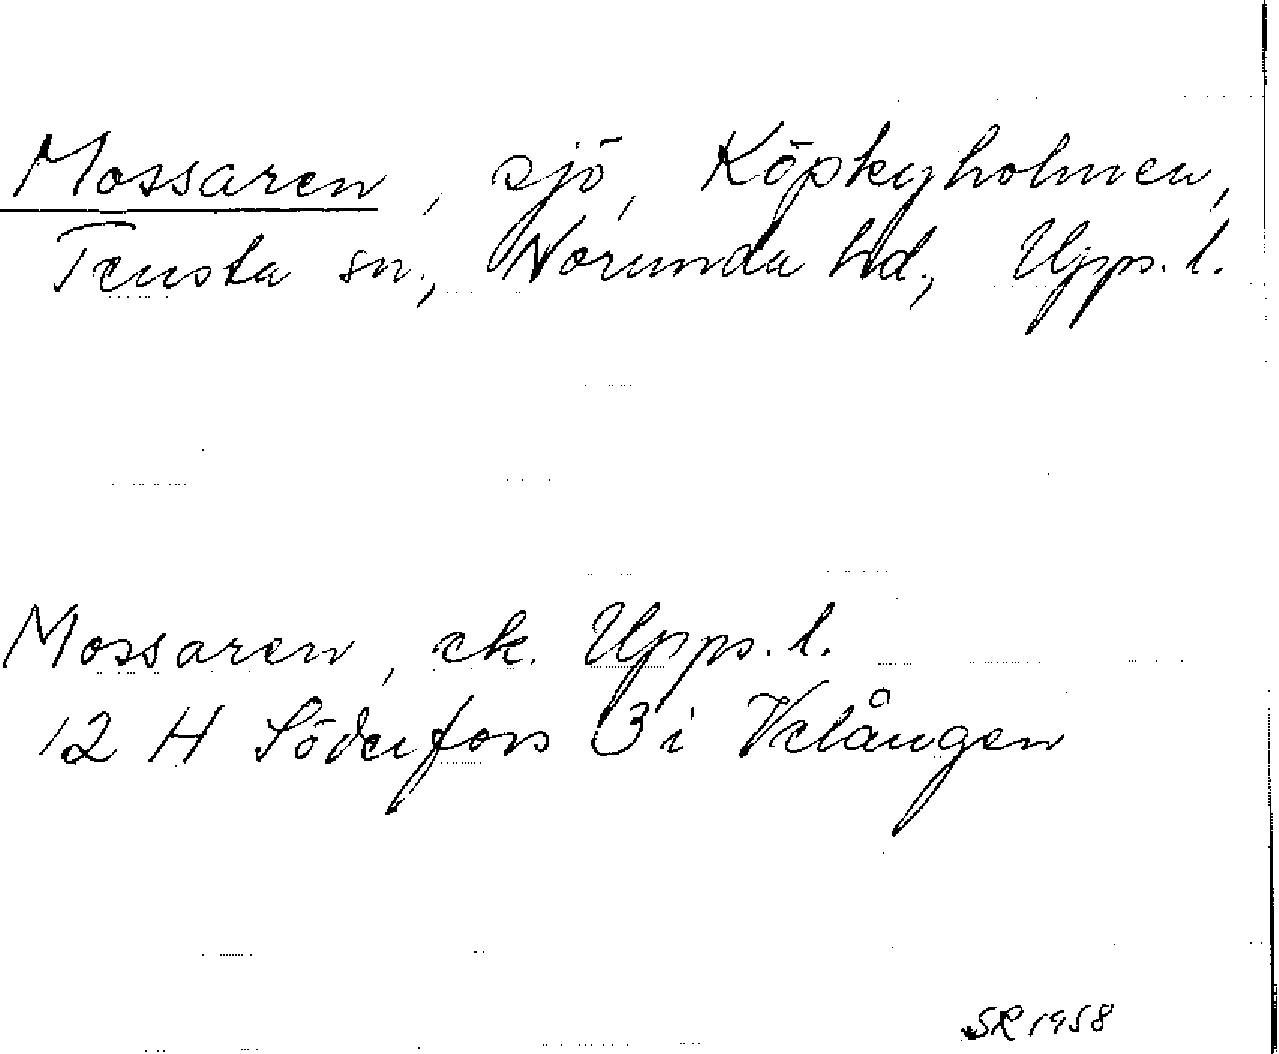 Mossaren, sjö, Köpkyholmen,
Tensta sn., Norunda hd., Upps. l.
Mossaren, ek. Upps. l.
12 H Söderfors 3 i Velången
SR 1958